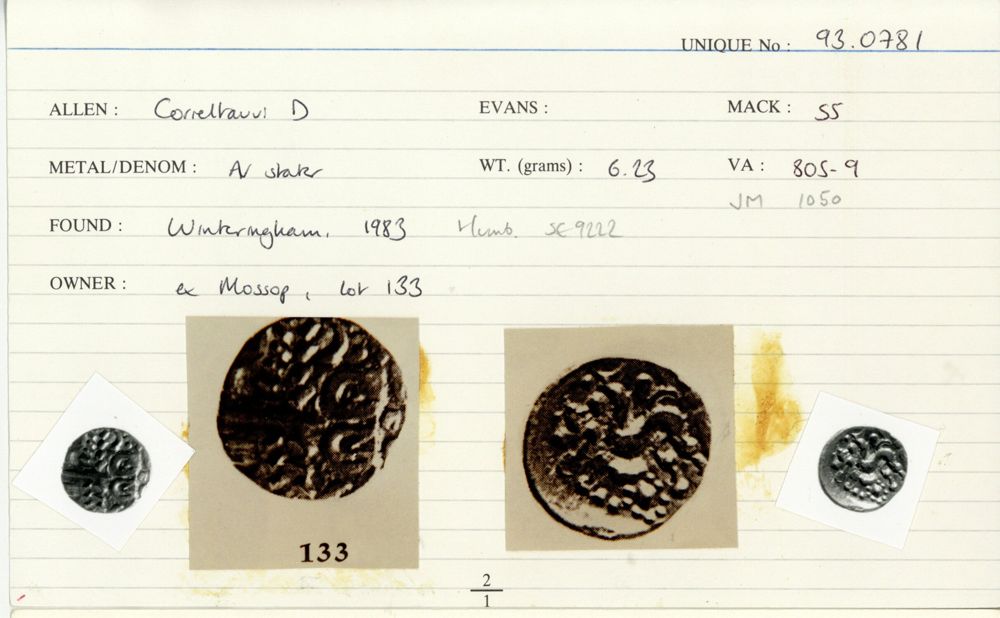 UNIQUE No : 93.0781
ALLEN : Corieltauvi D EVANS : MACK : 55
METAL/DENOM : AV stater WT. (grams) : 6.23 VA : 805-9
JM 1050
FOUND : Winteringham, 1983 Humb. SE 9222
OWNER : ex Mossop, lot 133
133
2
1